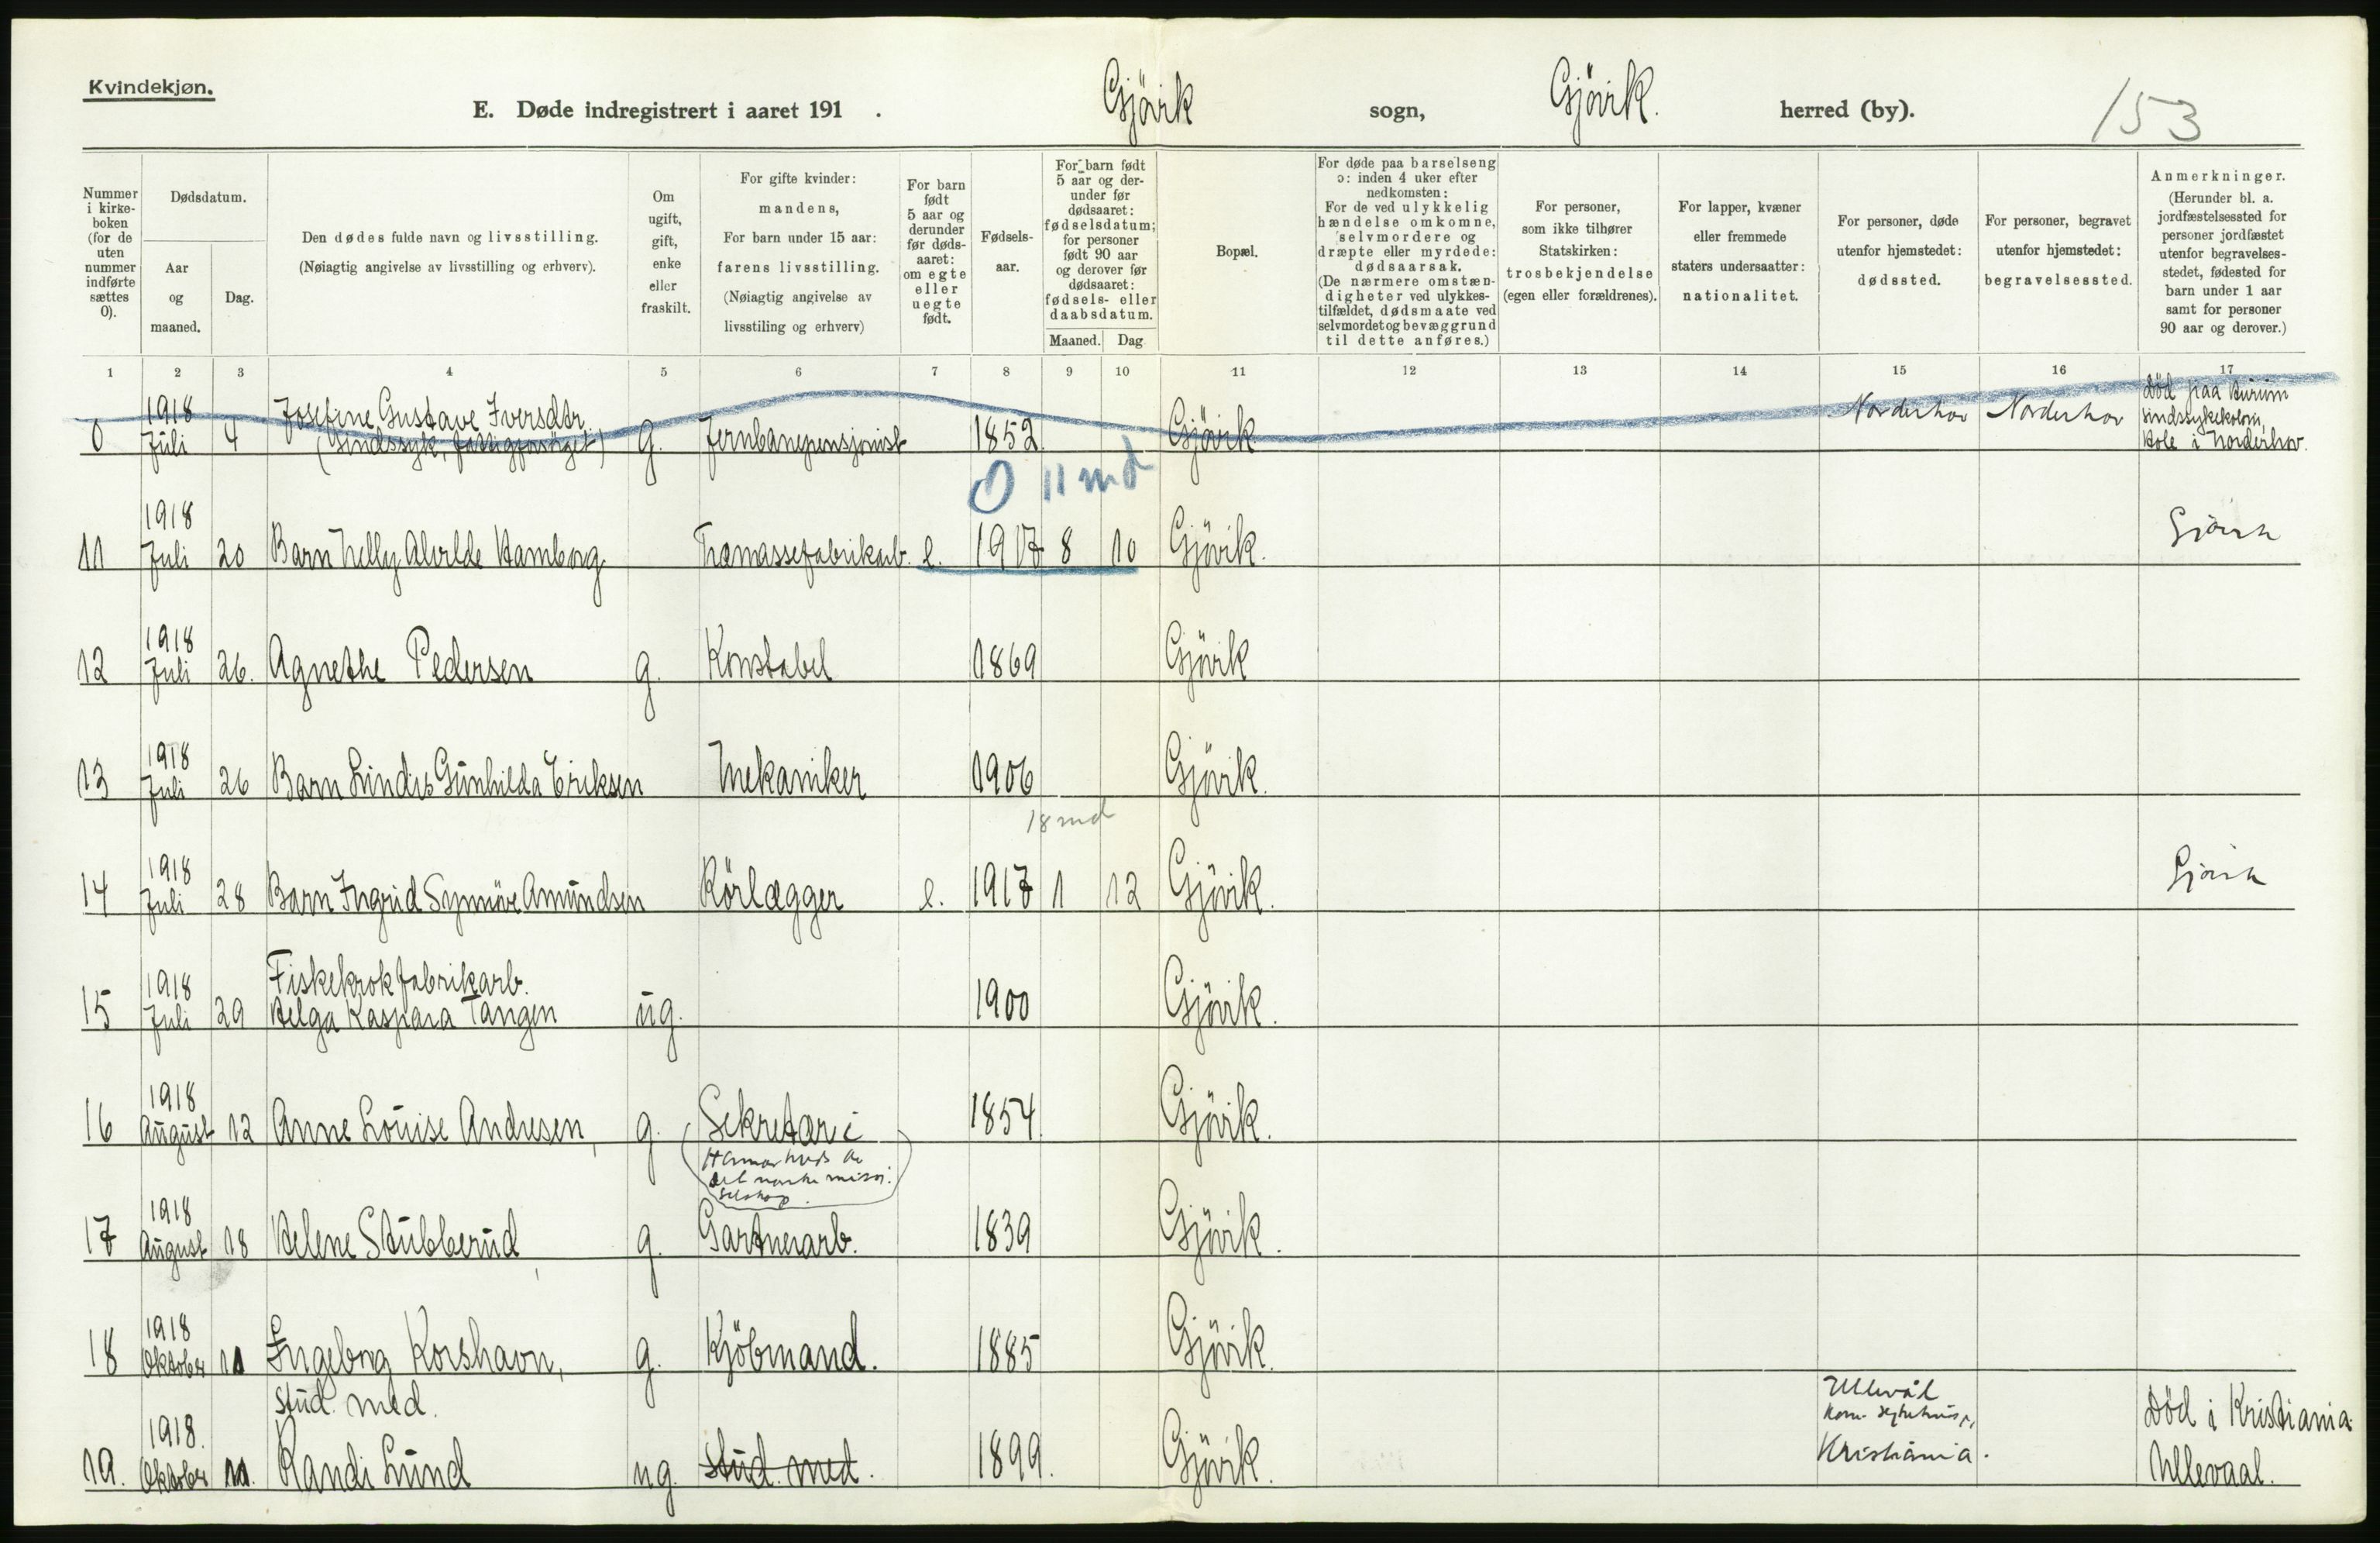 Kvindekjøn.
E. Døde indregistrert i aaret 191 . Gjövik sogn, Gjövik. herred (by). 153
Nummer i kirkeboken (for de uten nummer indførte sættes 0).
Dødsdatum.
Aar og maaned.
Dag.
Den dødes fulde navn og livsstilling.
(Nøiagtig angivelse av livsstilling og erhverv).
Om ugift, gift, enke eller fraskilt.
For gifte kvinder: mandens,
For barn under 15 aar: farens livsstilling.
(Nøiagtig angivelse av livsstiling og erhverv)
For barn født 5 aar og derunder før dødsaaret: om egte eller uegte født.
Fødselsaar.
For barn født 5 aar og derunder før dødsaaret: fødselsdatum; for personer født 90 aar og derover før dødsaaret: fødsels- eller daabsdatum.
Maaned. Dag
Bopæl.
For døde paa barselseng ɔ: inden 4 uker efter nedkomsten:
For de ved ulykkelig hændelse omkomne, selvmordere og dræpte eller myrdede: dødsaarsak.
(De nærmere omstændigheter ved ulykkestilfældet, dødsmaate ved selvmordet og bevæggrund til dette anføres.)
For personer, som ikke tilhører Statskirken: trosbekjendelse (egen eller forældrenes).
For lapper, kvæner eller fremmede staters undersaatter: nationalitet.
For personer, døde utenfor hjemstedet: dødssted.
For personer, begravet utenfor hjemstedet: begravelsessted.
Anmerkninger.
(Herunder bl. a. jordfæstelsessted for personer jordfæstet utenfor begravelsesstedet, fødested for barn under 1 aar samt for personer 90 aar og derover.)
1 2 3 4 5 6 7 8 9 10 11 12 13 14 15 16 17
1918 Josefine Gustave Iversdtr. Död paa
0 Juli 4 (Sindssyk, fattigforsörget) g. Jernbanepensjonist 1852 Gjövik Norderhov Norderhov sindssykekoloni,
Hole i Norderhov.
0 11 md
1918
11 Juli 20 Barn Nelly Alvilde Hamborg Træmassefabrikarb. e. 1917 8 10 Gjövik. Gjövik
1918
12 Juli 26. Agnethe Pedersen g. Konstabel 1869 Gjövik
1918
13 Juli 26 Barn Lindis Gunhilda Eriksen Mekaniker 1906 Gjövik.
18 md
1918
14 Juli 28 Barn Ingrid Synnöve Amundsen Rörlægger e. 1917 1 12 Gjövik. Gjövik
1918 Fiskekrokfabrikarb.
15 Juli 29 Helga Kaspara Tangen ug. 1900 Gjövik.
1918
16 August 12 Anne Louise Andresen, g. Sekretær i 1854 Gjövik.
Hamar kreds av
det norske misj.
selskap.
1918
17 August 18 Helene Stubberud g. Gartnerarb. 1839 Gjövik.
1918
18 Oktober 11 Ingeborg Korshavn, g. Kjöbmand. 1885 Gjövik.
stud. med. Ullevål
1918. kom. sykehus, Död i Kristiania
19. Oktober 11. Randi Lund ug. stud. med. 1899. Gjövik. Kristiania. Ullevaal.